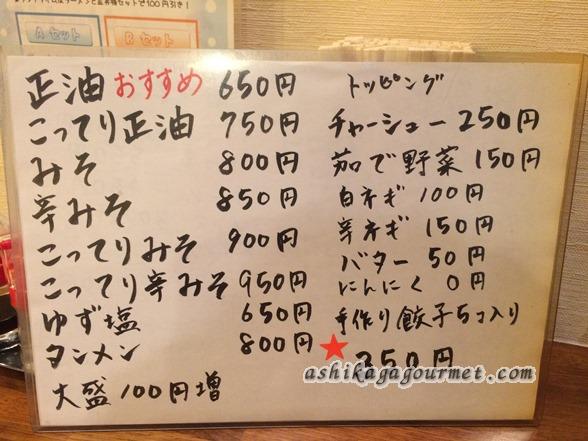 Aセット
Bセット
正油 おすすめ 650円
こってり正油 750円
みそ 800円
辛みそ 850円
こってりみそ 900円
こってり辛みそ 950円
ゆず塩 650円
タンメン 800円
大盛100円増
トッピング
チャーシュー 250円
茹で野菜 150円
白ネギ 100円
辛ネギ 150円
バター 50円
にんにく 0円
手作り餃子5コ入り
★ 350円
ashikagagourmet.com